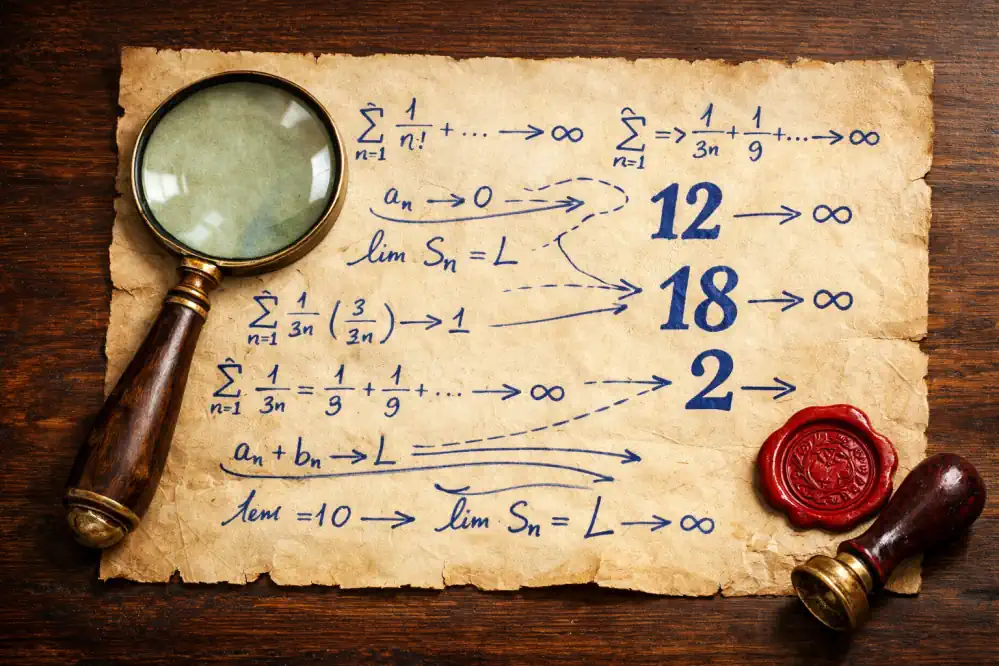 ∑̂ n=1 1/n! + ... → ∞
∑̂ n=1 => 1/3n + 1/9 + ... → ∞
aₙ → 0
12 → ∞
lim Sₙ = L
18 → ∞
∑̂ n=1 1/3n (3/3n) → 1
2 →
∑̂ n=1 1/3n = 1/9 + 1/9 + ... → ∞
aₙ + bₙ → L
=10 → lim Sₙ = L → ∞